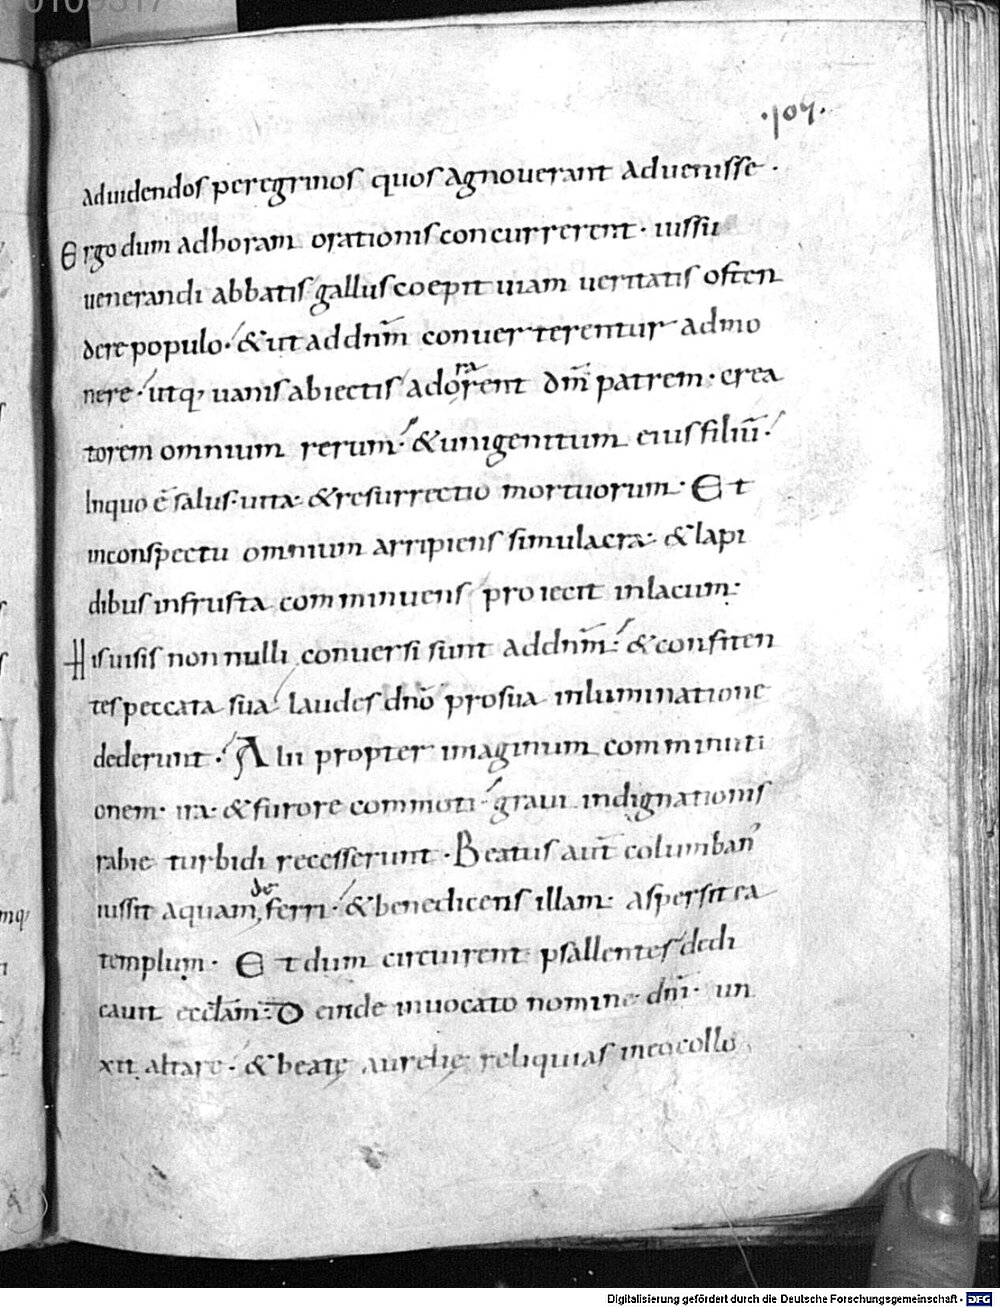 ·107·
aduidendos peregrinos quos agnouerant aduenisse ·
Ergo dum adhoram orationis concurrerent · iussu
uenerandi abbatis gallus coepit uiam ueritatis osten
dere populo · & ut addnm̄ conuerterentur admo
nere · utq; uanis abiectis adorent dm̄ patrem · crea
ra
torem omnium rerum · & unigenitum eius filiū ·
Inquo ē salus · uita · & resurrectio mortuorum · Et
inconspectu omnium arripiens simulacra · & lapi
dibus infrusta comminuens proiecit inlacum ·
His uisis non nulli conuersi sunt addnm̄ · & confiten
tes peccata sua laudes dnō pro sua inluminatione
dederunt · Alii propter imaginum comminuti
onem · ira · & furore commoti · graui indignationis
rabie turbidi recesserunt · Beatus aut̄ columban'
iussit aquam, ferri · & benedicens illam · aspersit ea
de
templum · Et dum circuirent psallentes dedi
cauit eccl̄am · Deinde inuocato nomine dnī · un
xit altare · & beatę aurelię reliquias ineo collo
Digitalisierung gefördert durch die Deutsche Forschungsgemeinschaft - DFG